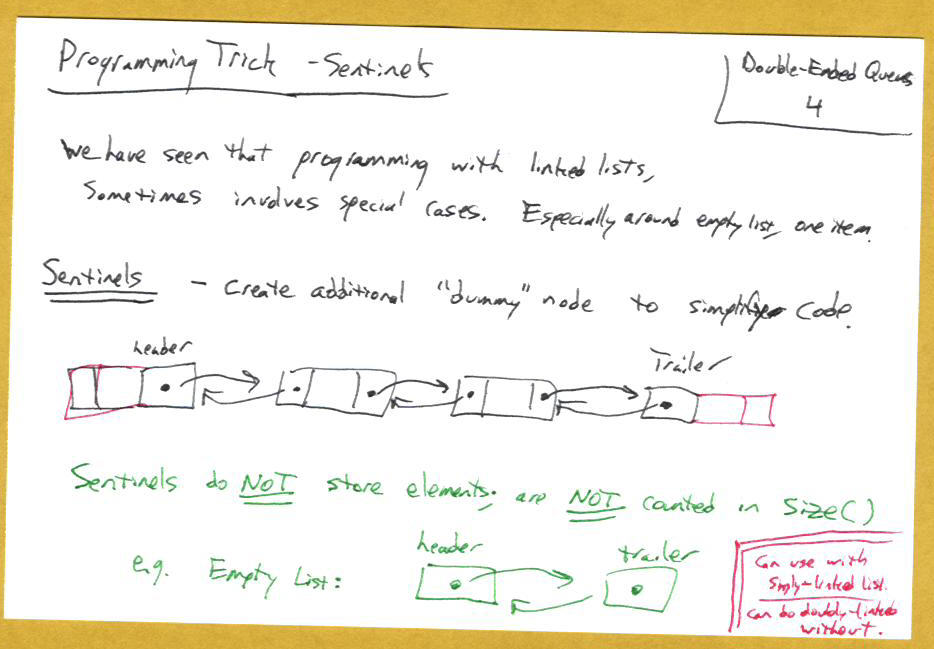 Programming Trick - Sentinels
Double-Ended Queues
4
We have seen that programming with linked lists,
Sometimes involves special cases. Especially around empty list, one item.
Sentinels - create additional "dummy" node to simplify code.
header
Trailer
Sentinels do NOT store elements; are NOT counted in size()
header
trailer
e.g. Empty List:
Can use with
Singly-linked list.
can be doubly-linked
without.